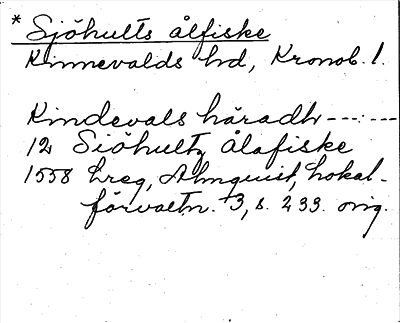 * Sjöhults ålfiske
Kinnevalds hd, Kronob. l.
Kindevals häradh ---:---
12 Siöhultz Ålafiske
1558 Lreg, Almquist, Lokal-
förvaltn. 3, s. 233. orig.